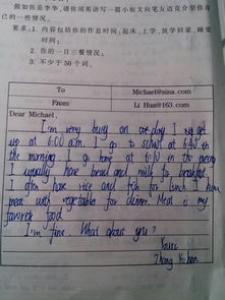 假如你是李华,请你用英语写一篇小短文向笔友迈克介绍你自
己的一些情况。
要求:1. 内容包括你的作息时间(起床、上学、放学回家、睡觉
时间);
2. 你的一日三餐情况;
3. 不少于 50 个词。
To Michael@sina.com
From Li Hua@163.com
Dear Michael,
I'm very busy on one day I get
up at 6:00 a.m. I go to school at in
the morning. I go home at 6:10 in the
I usually have bread and milk for breakfast.
I often have rice and fish for lunch I have
meat with vegetables for dinner. Meat is my
favorite food
I'm fine. What about you?
Yours
Zhang